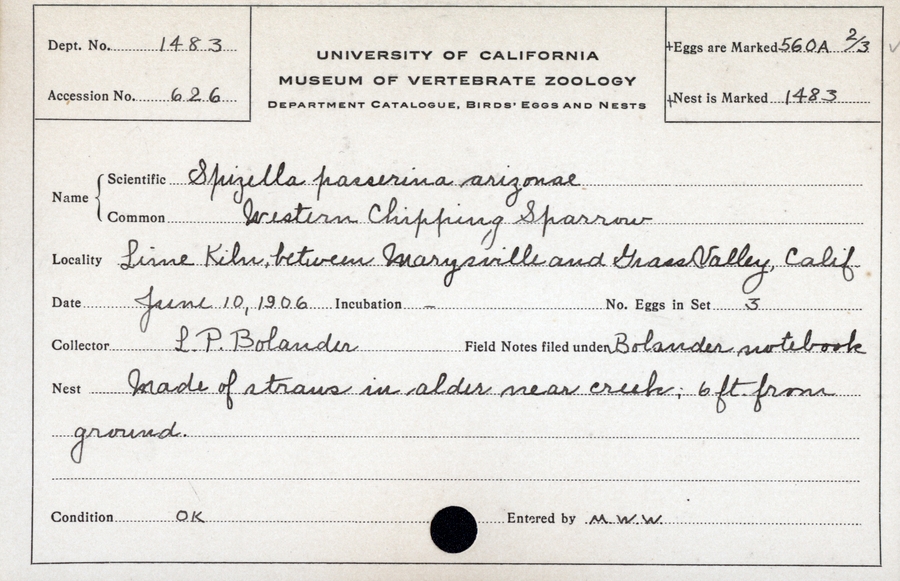 Dept. No. 1483
Accession No. 626
UNIVERSITY OF CALIFORNIA
MUSEUM OF VERTEBRATE ZOOLOGY
DEPARTMENT CATALOGUE, BIRDS' EGGS AND NESTS
+Eggs are Marked 560A 2/3
+Nest is Marked 1483
Name
Scientific Spizella passerina arizonae
Common Western Chipping Sparrow
Locality Lime Kiln, between Marysville and Grass Valley, Calif.
Date June 10, 1906 Incubation – No. Eggs in Set 3
Collector L. P. Bolander Field Notes filed under Bolander notebook
Nest Made of straws in alder near creek; 6 ft. from
ground.
Condition OK Entered by M.W.W.